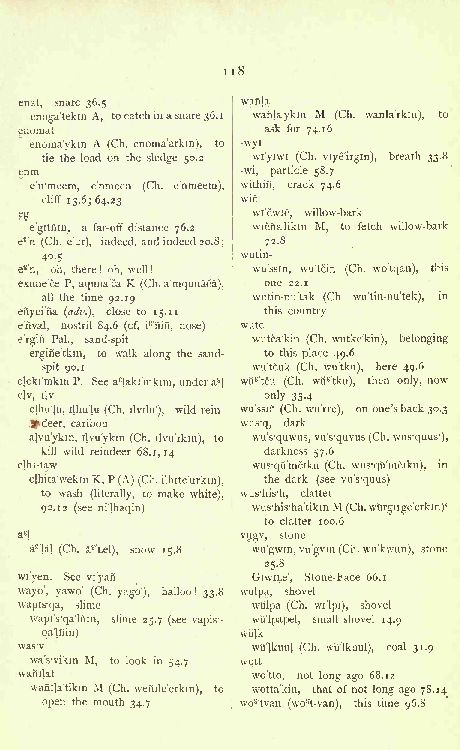 118
enat, snare 36.5
enaga'tekın A, to catch in a snare 36.1
enomat
enoma'ykın A (Ch. enoma'arkın), to
tie the load on the sledge 50.2
enm
e'nmeem, e'nmeen (Ch. e'nmeem),
cliff 13.6; 64.23
eg
e'gıtñın, a far-off distance 76.2
(Ch. e'ur), indeed, and indeed 20.8;
40.5
oh, there! oh, well!
all the time 92.19
eñyei'ña (adv.), close to 15.11
e'ñval, nostril 84.6 (cf. nose)
e'rgiñ Pal., sand-spit
ergiñe'tkın, to walk along the sand-
spit 90.1
See under
eļv, iļv
wild rein-
deer, caribou
aļvu'ykın, iļvu'ykın (Ch. ılvu'rkın), to
kill wild reindeer 68.1, 14
eļhı-taw
K, P (A)
to wash (literally, to make white),
92.12 (see niļhaqin)
snow 15.8
wi'yen. See vi'yañ
wayo', yawo' (Ch. yago'), halloo! 33.8
wapıs·qa, slime
wapı's·qa'lñın, slime 25.7 (see vapıs·-
qa'lñin)
was·v
wa's·vikın M, to look in 54.7
wañļat
wañļa'tikın M (Ch. weñıle'erkın), to
open the mouth 34.7
wanļa
wanļa'ykın M (Ch. wanla'rkın), to
ask for 74.16
-wyi
wı'yıwi (Ch. vıyê'irgın), breath 33.8
-wi, particle 58.7
withiñ, crack 74.6
wiñ
willow-bark
M, to fetch willow-bark
72.8
wutin-
wu'ssın, wu'tčin (Ch. wo'tqan), this
one 22.1
wutin-nu'tak (Ch. wu'tin-nu'tek), in
this country
wutc
wutča'kin (Ch. wutke'kin), belonging
to this place 49.6
wu'tčuk (Ch. wu'tku), here 49.6
then only, now
only 35.4
(Ch. wu'rre), on one's back 30.3
wus·q, dark
wu's·quwus, vu's·quvus (Ch. wus·quus'),
darkness 57.6
wus·qu'mčıku (Ch. wus·qu'mčıku), in
the dark (see vu's·quus)
wus·his·h, clatter
wus·his·ha'tikın M
to clatter 100.6
vŭgv, stone
wu'gwın, vu'gvın (Ch. wu'kwun), stone
35.8
Stone-Face 66.1
wulpa, shovel
wŭlpa (Ch. wi'lpı), shovel
wŭ'lpapel, small shovel 14.9
wŭļk
wu'ļkuuļ (Ch. wŭ'lkuul), coal 31.9
wott
wo'tto, not long ago 68.12
wotta'kin, that of not long ago 78.14
this time 96.8